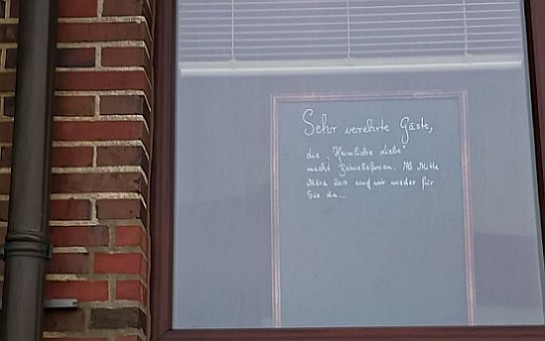 Sehr verehrte Gäste,
die „Heimliche Liebe"
macht Betriebsferien. Ab Mitte
März sind wir wieder für
Sie da...